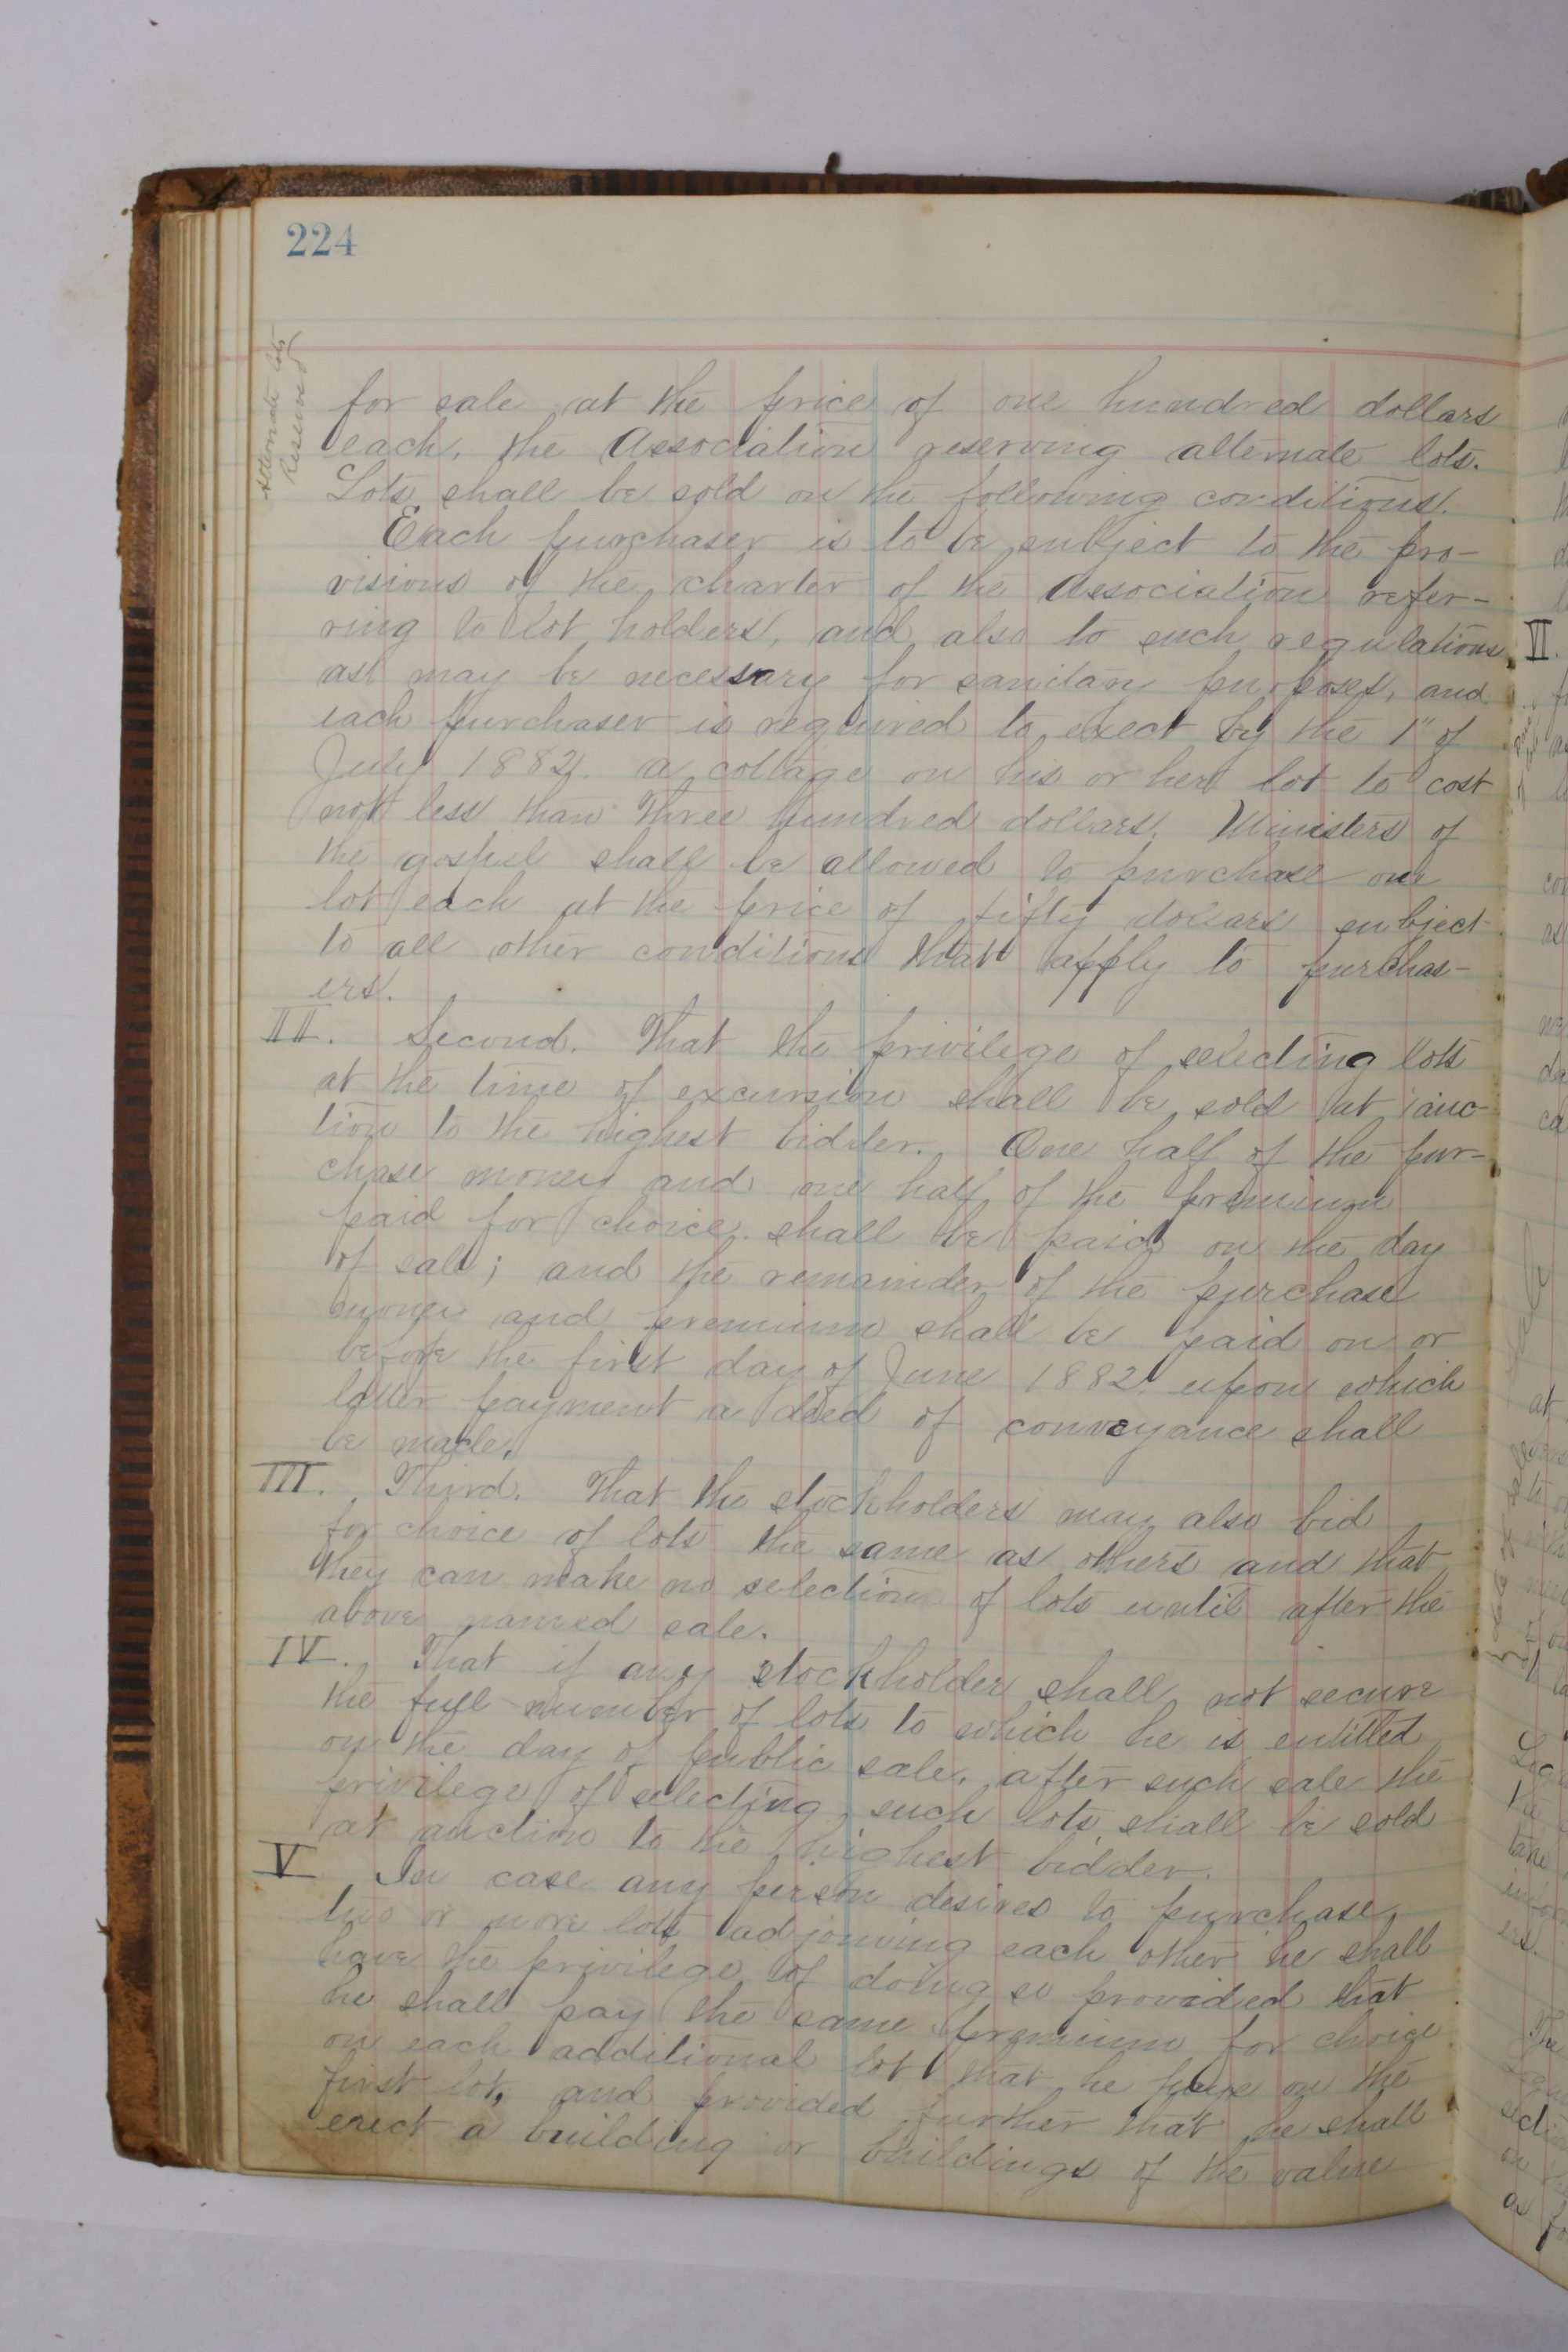 224
Alternate lots
Reserved
for sale at the price of one hundred dollars
each, the Association reserving alternate lots.
Lots shall be sold on the following conditions.
Each purchaser is to be subject to the pro-
visions of the charter of the Association refer-
ring to lot holders, and also to such regulations
as may be necessary for sanitary purposes, and
each purchaser is required to erect by the 1" of
July 1882. a cottage on his or her lot to cost
not less than three hundred dollars. Ministers of
the gospel shall be allowed to purchase one
lot each at the price of fifty dollars subject
to all other conditions that apply to purchas-
ers.
II. Second. That the privilege of selecting lots
at the time of excursion shall be sold at auc-
tion to the highest bidder. One half of the pur-
chase money and one half of the premium
paid for choice shall be paid on the day
of sale; and the remainder of the purchase
money and premium shall be paid on or
before the first day of June 1882. upon which
latter payment a deed of conveyance shall
be made.
III. Third. That the stockholders may also bid
for choice of lots the same as others and that
they can make no selection of lots until after the
above named sale.
IV. That if any stockholder shall not secure
the full number of lots to which he is entitled
on the day of public sale, after such sale the
privilege of selecting such lots shall be sold
at auction to the highest bidder.
V In case any person desires to purchase
two or more lots adjoining each other he shall
have the privilege of doing so provided that
he shall pay the same premium for choice
on each additional lot that he pays on the
first lot, and provided further that he shall
erect a building or buildings of the value
VI.